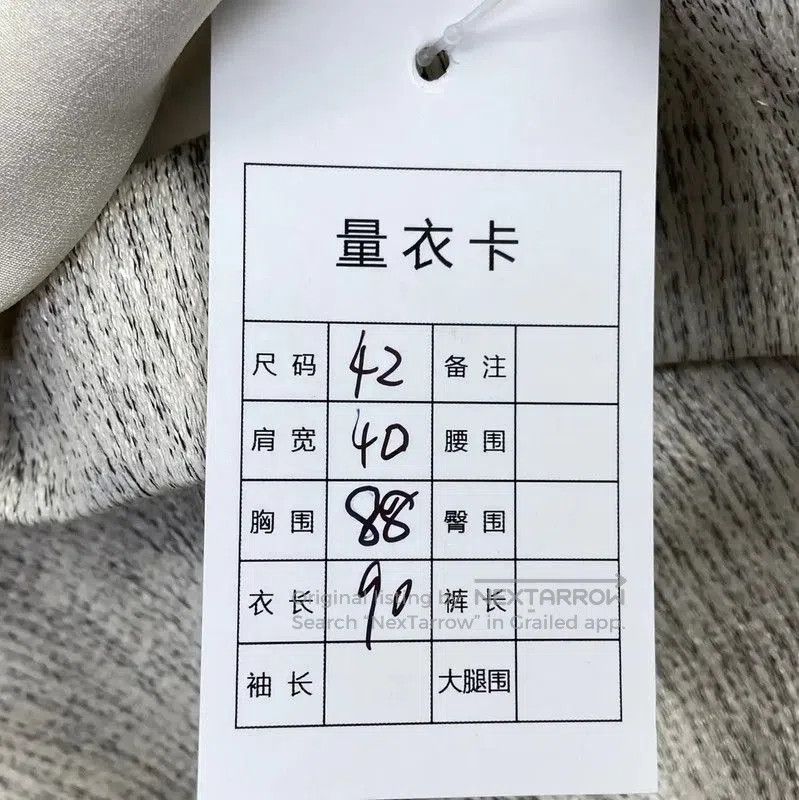 量衣卡
尺码 42 备注
肩宽 40 腰围
胸围 88 臀围
衣长 90 裤长
Original listing by NEXTARROW
Search "NexTarrow" in Grailed app.
袖长 大腿围